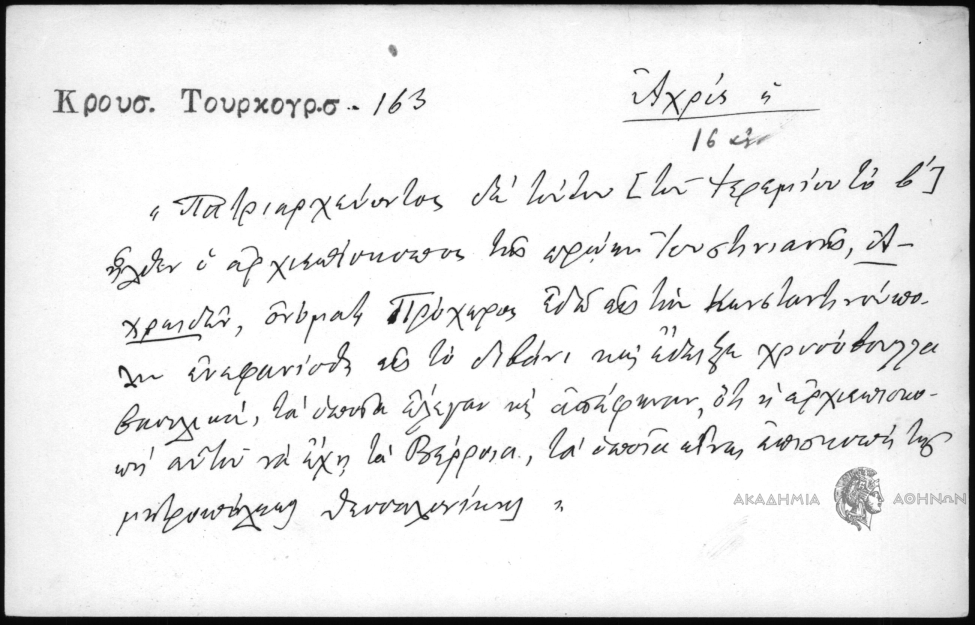 Κρουσ. Τουρκογρ.σ - 163
Ἀχρίς ἡ
16
"Πατριαρχεύοντος δὲ τούτου [τοῦ Ἱερεμίου τὸ β']
ἦλθεν ὁ ἀρχιεπίσκοπος τῆς πρώτης Ἰουστινιανῆς, Ἀ-
χριδῶν, ὀνόματι Πρόχορος ἐδῶ εἰς τὴν Κωνσταντινούπο-
λιν ἐνεφανίσθη εἰς τὸ διβάνι καὶ ἔδειξε χρυσόβουλλα
βασιλικά, τὰ ὁποῖα ἔλεγαν καὶ ἀπέφηναν, ὅτι ἡ ἀρχιεπισκο-
πή αὐτοῦ νὰ ἔχῃ τὰ Βέρροια, τὰ ὁποῖα εἶναι ἐπισκοπή τῆς
μητροπόλεως Θεσσαλονίκης "
ΑΚΑΔΗΜΙΑ ΑΘΗΝΩΝ